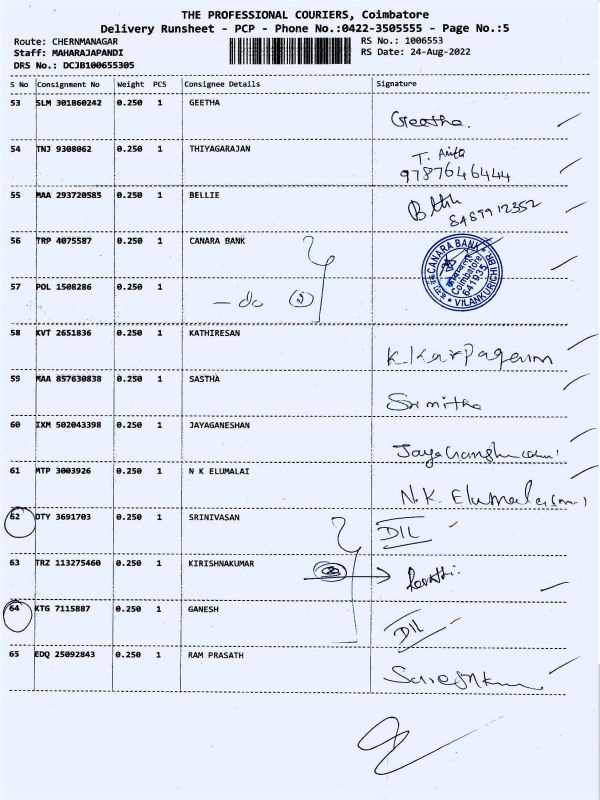 THE PROFESSIONAL COURIERS, Coimbatore
Delivery Runsheet - PCP - Phone No.:0422-3505555 - Page No.:5
Route: CHERNMANAGAR RS No.: 1006553
Staff: MAHARAJAPANDI RS Date: 24-Aug-2022
DRS No.: DCJB100655305
S No Consignment No Weight PCS Consignee Details Signature
53 SLM 301860242 0.250 1 GEETHA Geetha.
54 TNJ 9308062 0.250 1 THIYAGARAJAN T. Anita
9787646444
55 MAA 293720585 0.250 1 BELLIE
8489912352
56 TRP 4075587 0.250 1 CANARA BANK CANARA BANK Coimbatore 641035 VILANKURICHI BR
57 POL 1508286 0.250 1 - do (2)
58 KVT 2651836 0.250 1 KATHIRESAN K. Karpagam
59 MAA 857630838 0.250 1 SASTHA Srimitha
60 IXM 502043398 0.250 1 JAYAGANESHAN
61 MTP 3003926 0.250 1 N K ELUMALAI N.K. Elumalai
62 DTY 3691703 0.250 1 SRINIVASAN D/L
63 TRZ 113275460 0.250 1 KIRISHNAKUMAR
64 KTG 7115887 0.250 1 GANESH D/L
65 EDQ 25092843 0.250 1 RAM PRASATH